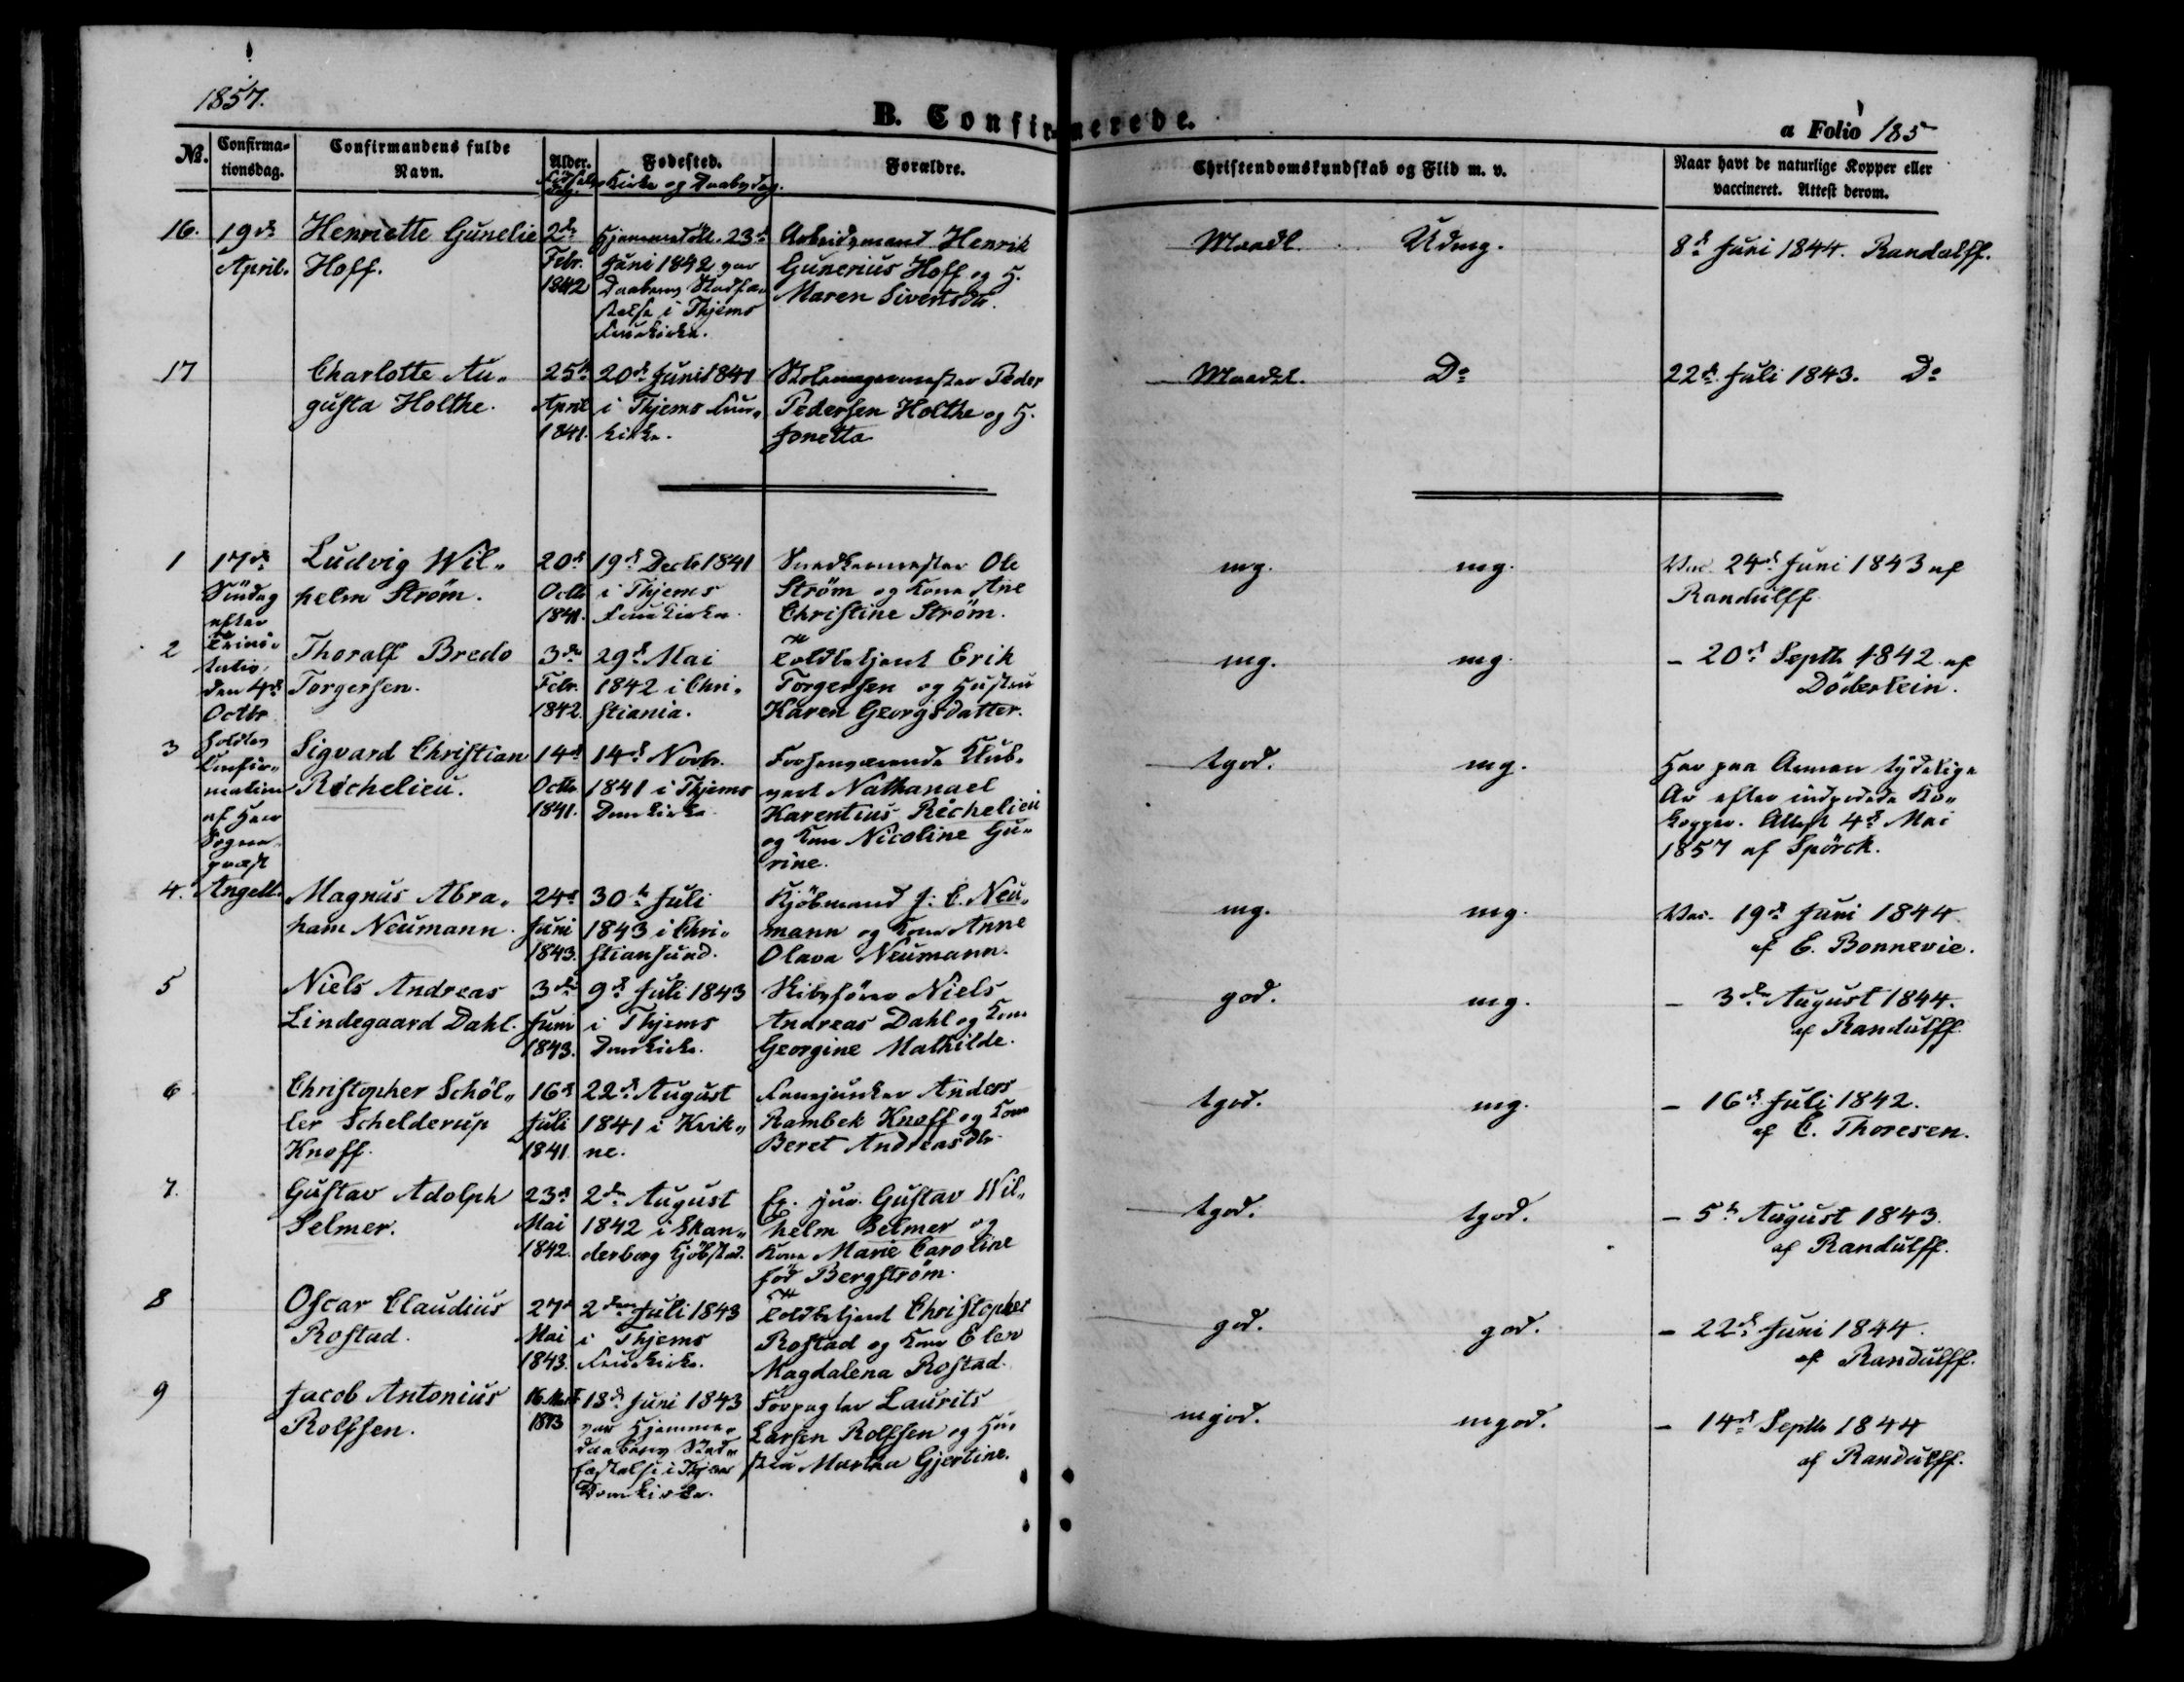 1857.
B. Confirmerede.
a Folio 185
No.
Confirma-
tionsdag.
Confirmandens fulde
Navn.
Alder.
Fødsels
dag.
Fødested.
Kirke og Daabsdag.
Forældre.
Christendomskundskab og Flid m. v.
Naar havt de naturlige Kopper eller
vaccineret. Attest derom.
16.
19de
April.
Henriette Gunelie
Hoff.
2den
Febr.
1842
Hjemmedöbt. 23de
Juni 1842 paa
Daabens Stadfæ-
stelse i Thjems
Fruekirke.
Arbeidsmand Henrik
Gunerius Hoff og H.
Maren Sivertsdr.
Maadl.
Udmg.
8de Juni 1844. Randulff.
17
Charlotte Au-
gusta Holthe.
25de
April
1841.
20de Juni 1841
i Thjems Frue-
kirke.
Peder
Pedersen Holthe og H.
Jonetta
Maadl.
Do
22de Juli 1843. Do
1
17de
Söndag
efter
Trini-
tatis,
den 4de
Octbr
holdtes
Confir-
mation
af Herr
Sogne-
præst
Angell.
Ludvig Wil-
helm Ström.
20de
Octb
1841.
19de Decbr 1841
i Thjems
Fruekirke.
Snedkermester Ole
Ström og Kone Ane
Christine Ström.
mg.
mg.
Vac. 24de Juni 1843 af
Randulff
2
Thoralf Bredo
Torgersen.
3die
Febr.
1842.
29de Mai
1842 i Chri-
stiania.
Toldbetjent Erik
Torgersen og Hustru
Karen Georgsdatter.
mg.
mg.
- 20de Septb. 1842 af
Döderlein.
3
Sigvard Christian
Richelieu.
14de
Octb
1841.
14de Novbr.
1841 i Thjems
Domkirke.
Forhenværende Klub-
vert Nathanael
Karentius Richelieu
og Kone Nicoline Gu-
rine.
tgod.
mg.
Har paa Armen tydelige
Ar efter indpodede Ko-
kopper. Attest 4de Mai
1857 af Spörck.
4.
Magnus Abra-
ham Neumann.
24de
Juni
1843.
30te Juli
1843 i Chri-
stiansund.
Kjöbmand J. C. Neu-
mann og Kone Anne
Olava Neumann.
mg.
mg.
Vac. 19de Juni 1844
af C. Bonnevie.
5
Niels Andreas
Lindegaard Dahl.
3die
Juni
1843.
9de Juli 1843
i Thjems
Domkirke.
Skibsförer Niels
Andreas Dahl og Kone
Georgine Mathilde.
god.
mg.
- 3die August 1844.
af Randulff.
6
Christopher Schöl-
ler Schelderup
Knoff.
16de
Juli
1841.
22de August
1841 i Kvik-
ne.
Fanejunker Anders
Rambek Knoff og Kone
Beret Andreasdtr
tgod.
mg.
- 16de Juli 1842.
af C. Thoresen.
7.
Gustav Adolph
Selmer.
23de
Mai
1842.
2den August
1842 i Skan-
derborg Kjöbstad.
Ex. jur. Gustav Wil-
helm Selmer og
Kone Marie Caroline
född Bergström.
tgod.
tgod.
- 5te August 1843.
af Randulff.
8
Oscar Claudius
Rostad.
27de
Mai
1843.
2den Juli 1843
i Thjems
Fruekirke.
Toldbetjent Christopher
Rostad og Kone Elen
Magdalena Rostad.
god.
god.
- 22de Juni 1844.
af Randulff.
9
Jacob Antonius
Rolfsen.
16 Marts
1843
18de Juni 1843
paa Hjemme-
daabens Stad-
fæstelse i Thjems
Domkirke.
Forpagter Laurits
Larsen Rolfsen og Hu-
stru Martha Gjertine.
mgod.
mgod.
- 14de Septb 1844
af Randulff.